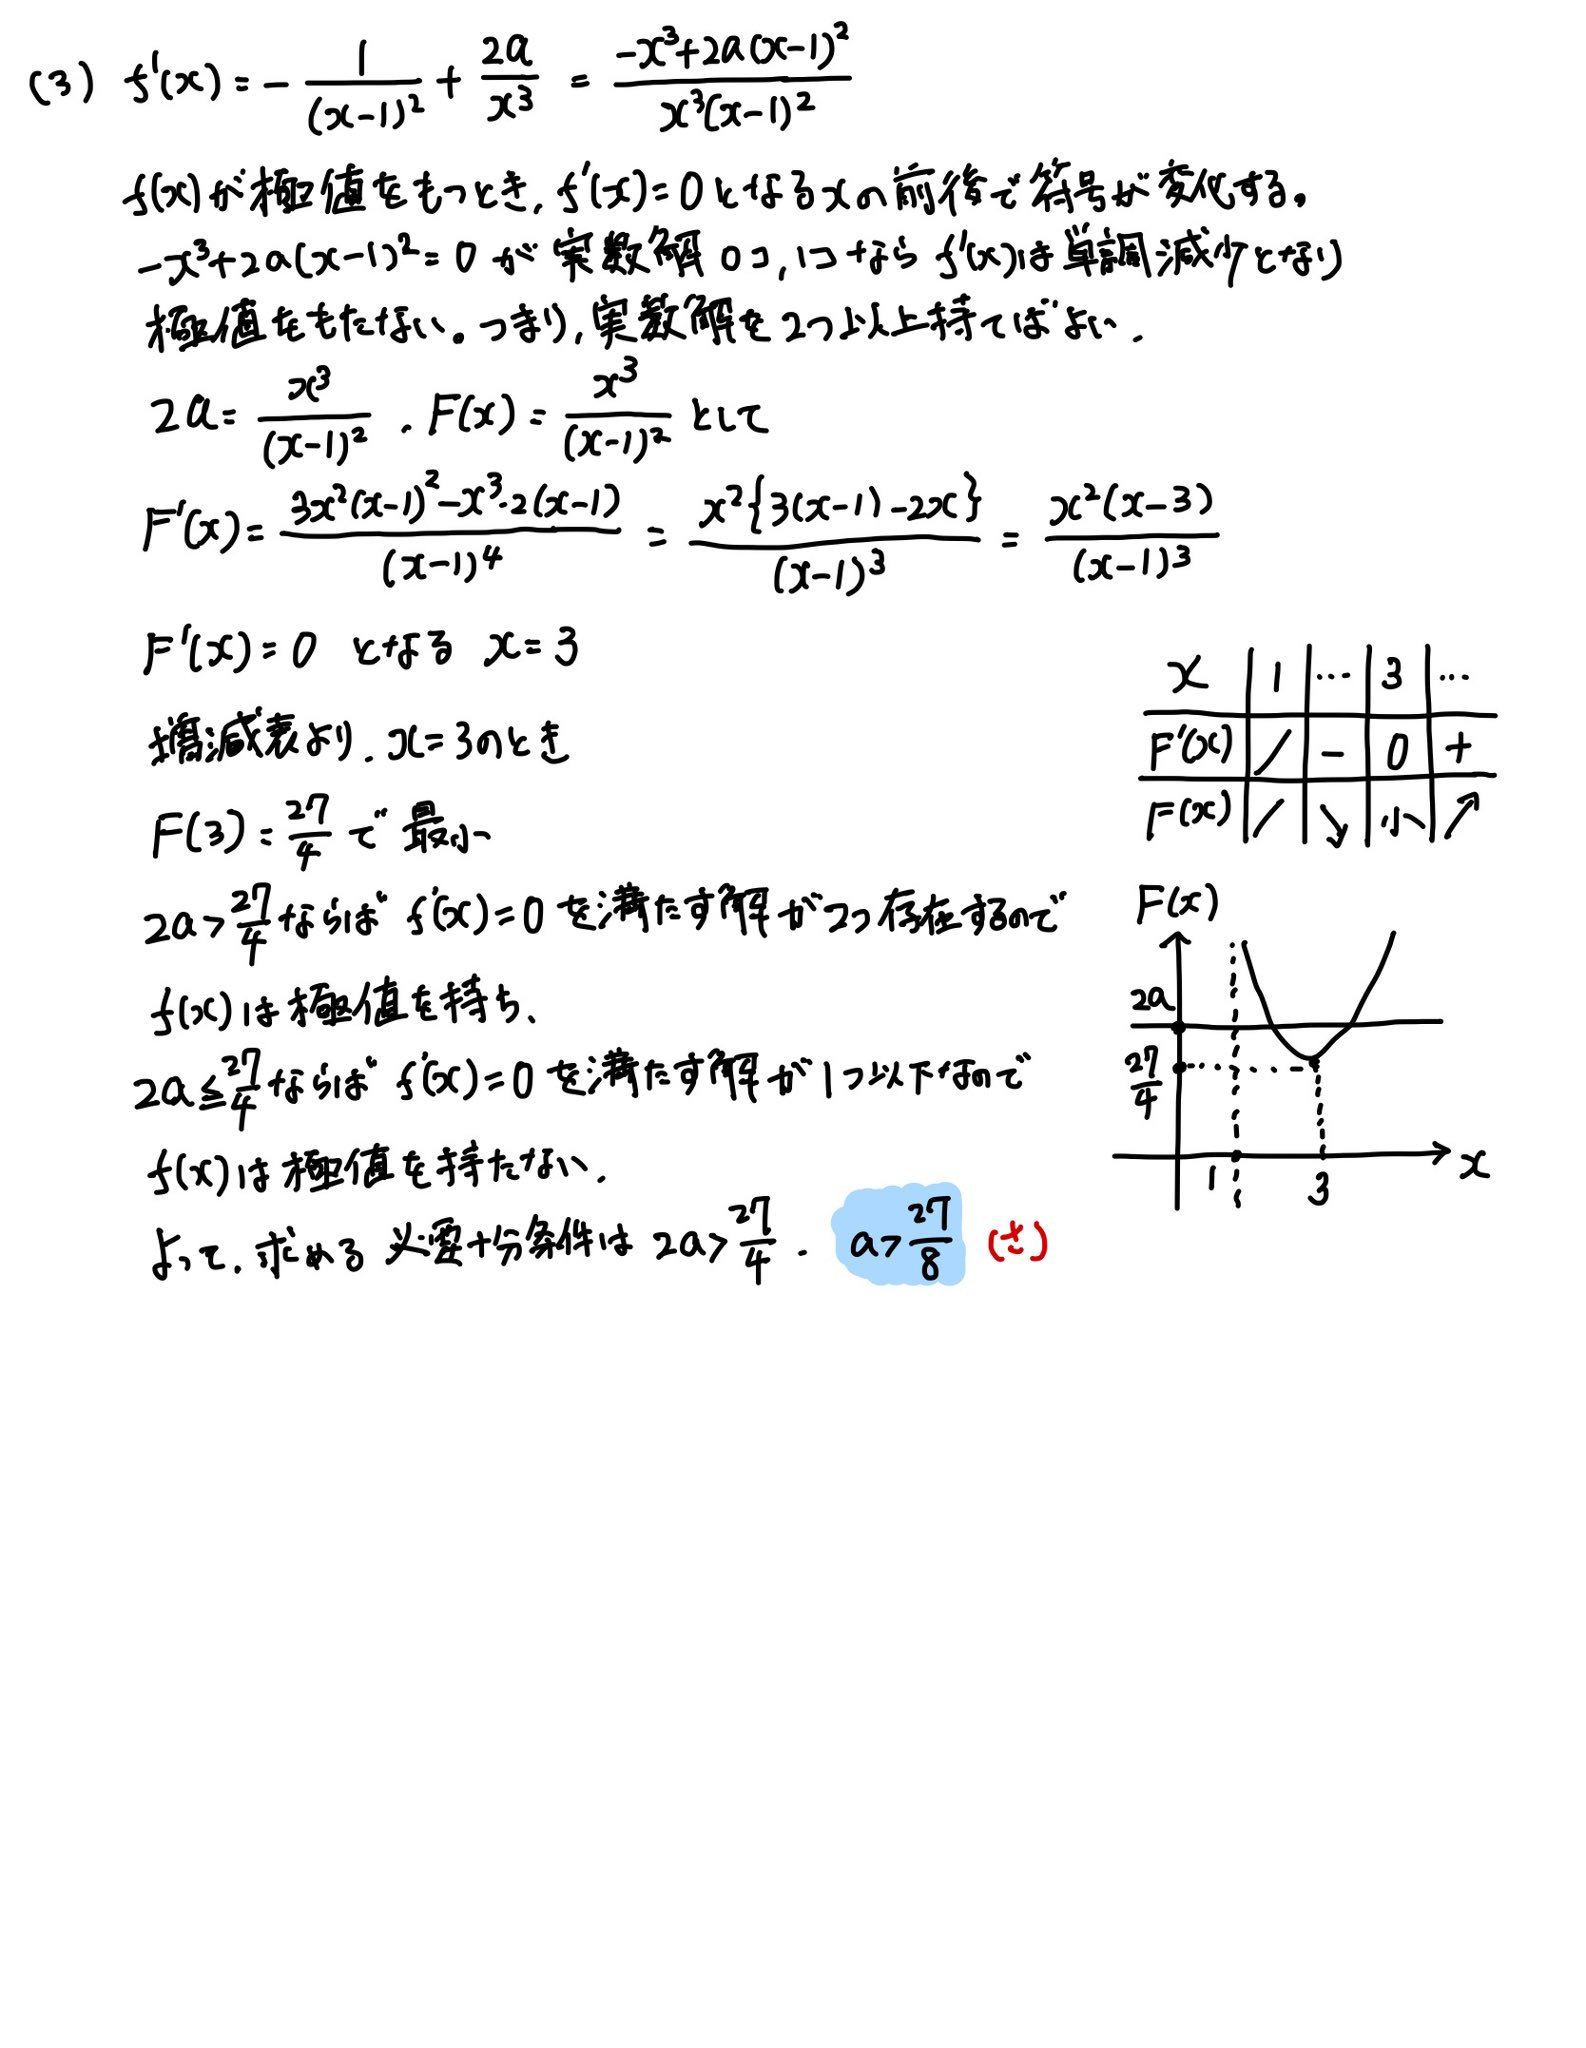 (3) f'(x) = - 1/(x-1)^2 + 2a/x^3 = (-x^3+2a(x-1)^2)/(x^3(x-1)^2)
f(x)が極値をもつとき, f'(x)=0となるxの前後で符号が変化する。
-x^3+2a(x-1)^2=0が実数解0コ,1コならf'(x)は単調減少となり
極値をもたない。つまり,実数解を2つ以上持てばよい.
2a= x^3/(x-1)^2 . F(x)= x^3/(x-1)^2 として
F'(x)= (3x^2(x-1)^2-x^3・2(x-1))/(x-1)^4 = x^2{3(x-1)-2x}/(x-1)^3 = x^2(x-3)/(x-1)^3
F'(x)=0 となる x=3
増減表より. x=3のとき
F(3)=27/4で最小
2a>27/4ならばf'(x)=0を満たす解が2つ存在するので
f(x)は極値を持ち、
2a≦27/4ならばf'(x)=0を満たす解が1つ以下なので
f(x)は極値を持たない.
よって.求める必要十分条件は 2a>27/4 . a>27/8 (さ)
x 1 … 3 …
F'(x) / - 0 +
F(x) / ↘ 小 ↗
F(x)
2a
27/4
1 3 x